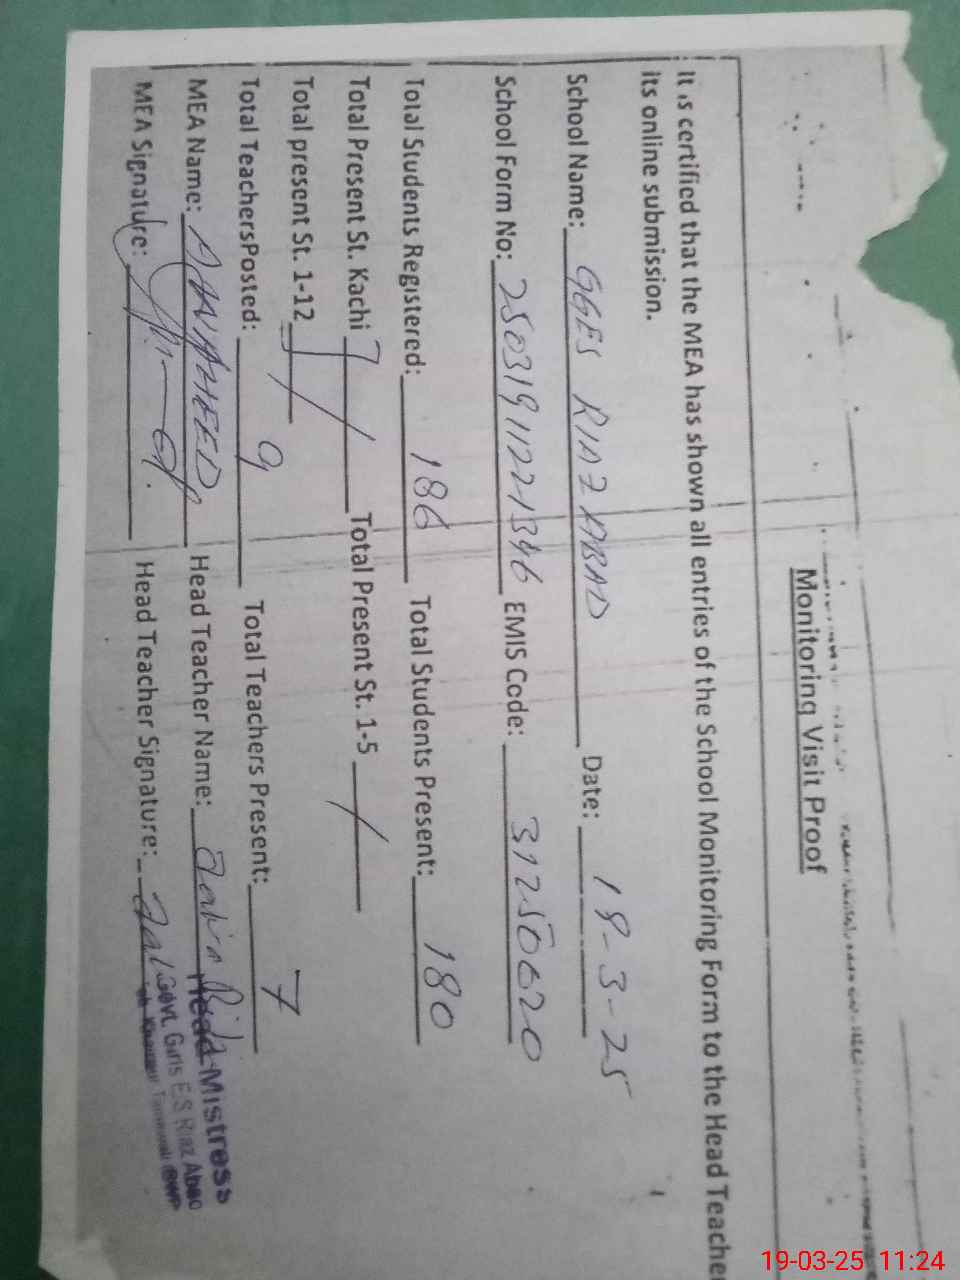 Monitoring Visit Proof
It is certified that the MEA has shown all entries of the School Monitoring Form to the Head Teacher
its online submission.
School Name: GGES RIAZ ABAD Date: 19-3-25
School Form No: 25031911221346 EMIS Code: 31250620
Total Students Registered: 186 Total Students Present: 180
Total Present St. Kachi / Total Present St. 1-5 /
Total present St. 1-12 /
Total TeachersPosted: 9 Total Teachers Present: 7
MEA Name: Head Teacher Name:
MEA Signature: Head Teacher Signature:
Head Mistress
Govt. Girls E.S Riaz Abad
19-03-25 11:24